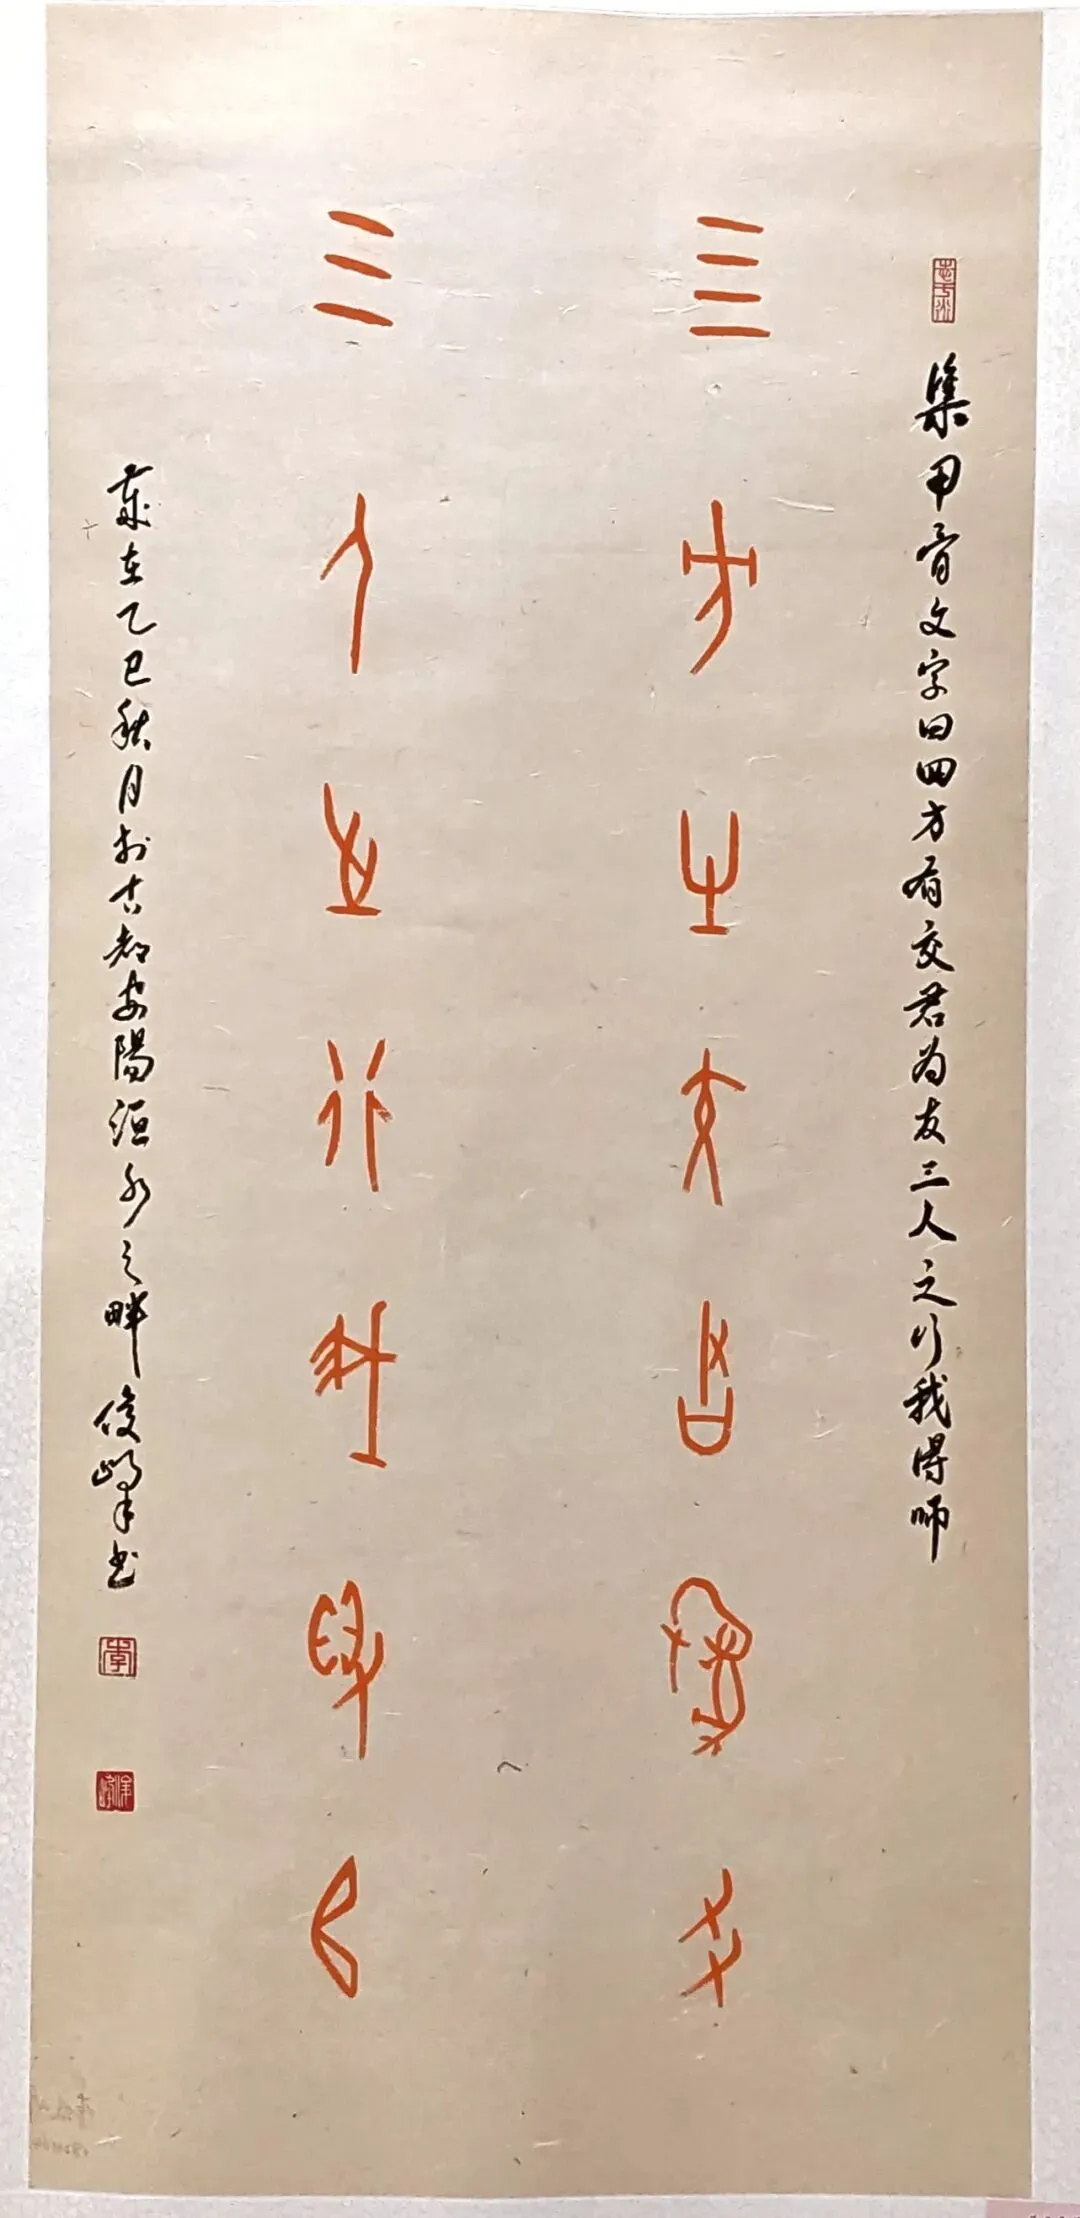 集甲骨文字曰四方有交君为友三人之行我得师
四方㞢交君为友
三人之行我得𠂤
岁在乙巳秋月于古都安陽洹水之畔俊峰书
李